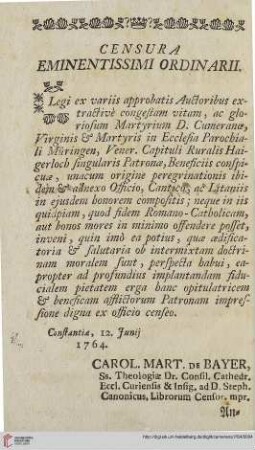 CENSURA
EMINENTISSIMI ORDINARII.
Legi ex variis approbatis Auctoribus ex-
tractivè congestam vitam, ac glo-
riosum Martyrium D. Cumeranæ,
Virginis & Martyris in Ecclesia Parochia-
li Müringen, Vener. Capituli Ruralis Hai-
gerloch singularis Patronæ, Beneficiis conspi-
cuæ, unacum origine peregrinationis ibi-
dem & adnexo Officio, Cantico, ac Litaniis
in ejusdem honorem compositis; neque in iis
quidpiam, quod fidem Romano-Catholicam,
aut bonos mores in minimo offendere posset,
inveni, quin imò ea potius, quæ ædifica-
toria & salutaria ob intermixtam doctri-
nam moralem sunt, perspecta habui, ea-
propter ad profundius implantandam fidu-
cialem pietatem erga hanc opitulatricem
& beneficam afflictorum Patronam impres-
sione digna ex officio censeo.
Constantiæ, 12. Junij
1764.
CAROL. MART. DE BAYER,
Ss. Theologiæ Dr. Consil. Cathedr.
Eccl. Curiensis & Insig. ad D. Steph.
Canonicus, Librorum Censor, mpr.
An-